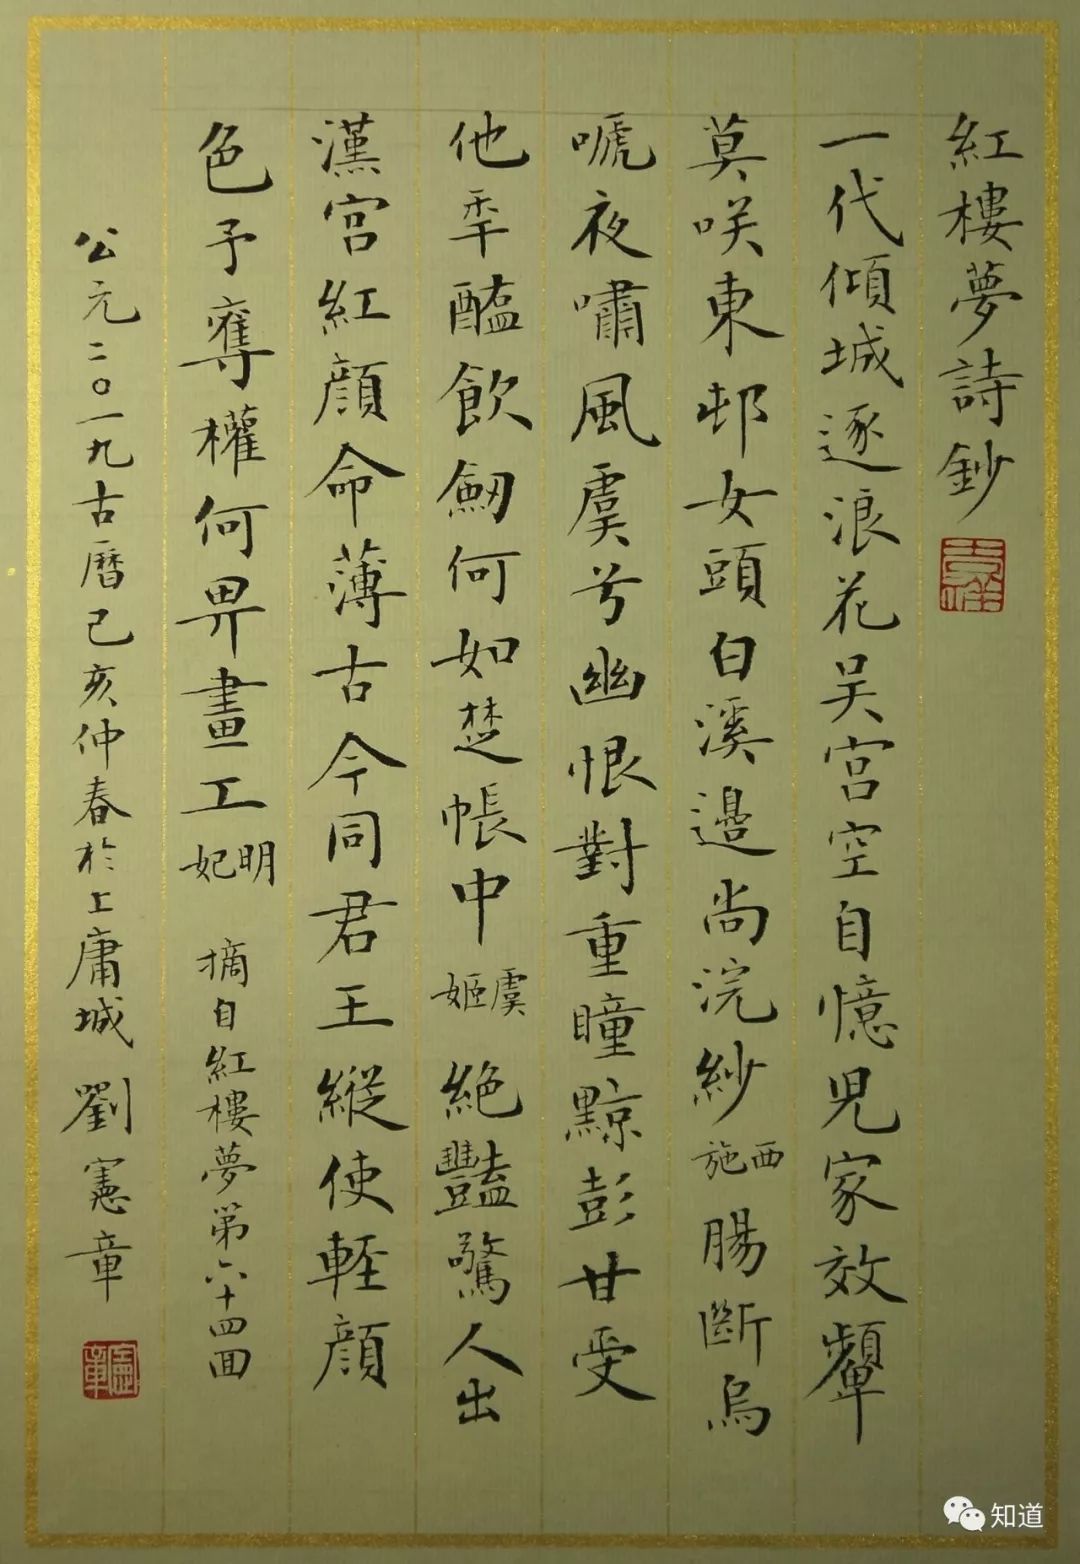 紅樓夢詩鈔
一代傾城逐浪花吴宫空自憶兒家效顰
莫咲東邨女頭白溪邊尚浣紗西施腸斷烏
嗁夜嘯風虞兮幽恨對重瞳黥彭甘受
他秊醢飲劒何如楚帳中虞姬絕豔驚人出
漢宮紅顔命薄古今同君王縱使輕顔
色予奪權何畀畫工明妃 摘自紅樓夢第六十四回
公元二〇一九古曆己亥仲春於上庸城 劉憲章
憲章
知道